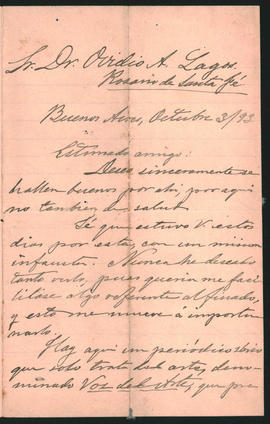 Sr. Dr. Ovidio A. Lagos.
Rosario de Santa Fé
Buenos Aires, Octubre 3/93
Estimado amigo:
Deseo sinceramente se
hallen buenos por ahi, por aqui
no tambien de salud.
Sé que estuvo V. estos
dias por esta, con una mision
infausta. Nunca he deseado
tanto verlo, pues queria me faci
litase algo referente al finado,
y esto me mueve á importu
narlo.
Hay aqui un periódico
que solo trata del arte, deno-
minado Voz del Arte, que pre